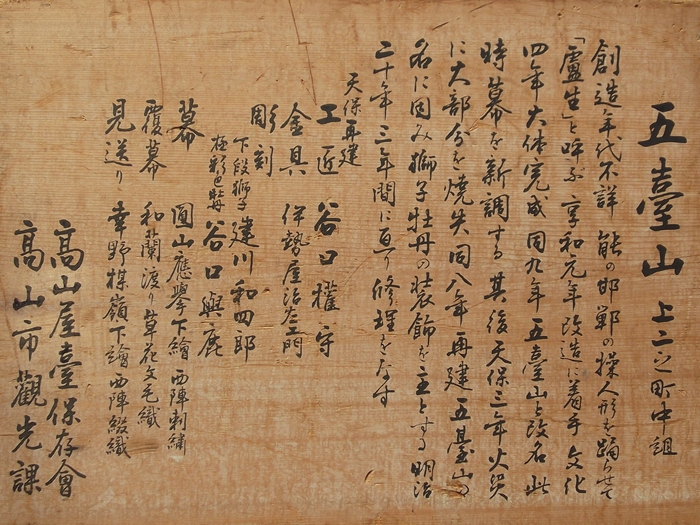 五臺山 上二之町中組
創造年代不詳 能の邯鄲の操人形を踊らせて
「盧生」と呼ぶ 享和元年改造に着手 文化
四年大体完成 同九年 五臺山と改名 此
時幕を新調する 其後天保三年火災
に大部分を焼失 同八年 再建 五臺山の
名に因み獅子牡丹の装飾を主とする 明治
二十年三年間に亘り修理をなす
天保再建
工匠 谷口權守
金具 伊勢屋治左エ門
彫刻
下段獅子 建川和四郎
極彩色牡丹 谷口與鹿
幕 圓山應擧下繪 西陣刺繡
覆幕 和蘭渡り草花文毛織
見送り 幸野楳嶺下繪 西陣綴織
高山屋臺保存會
高山市觀光課